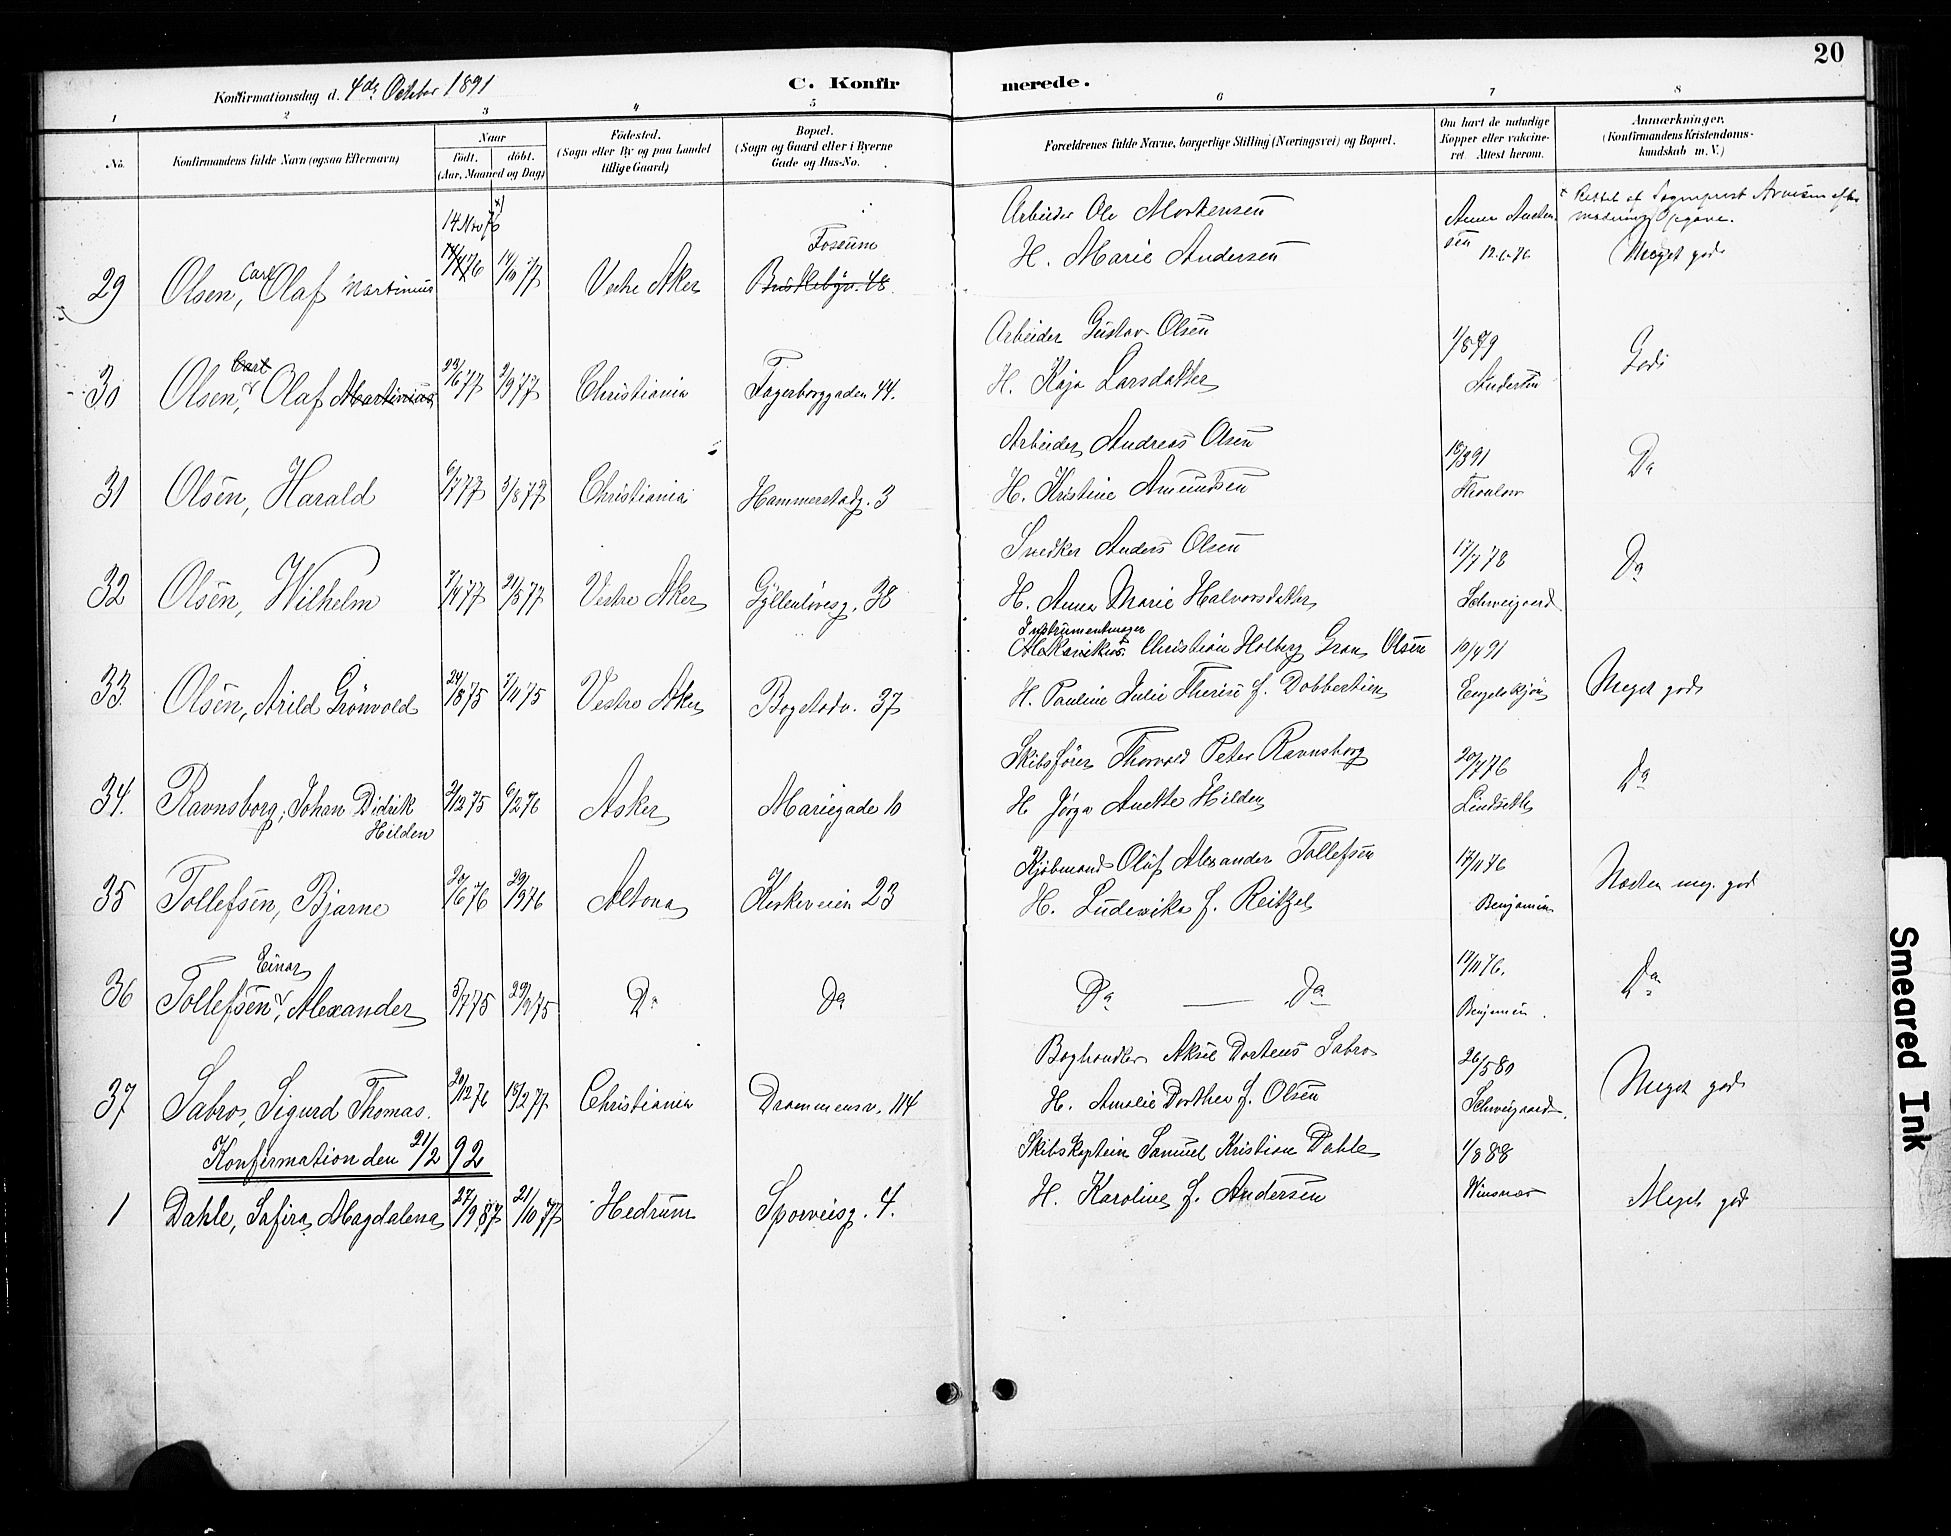 20
Konfirmationsdag d. 4de October 1891
C. Konfirmerede.
1 2 3 4 5 6 7 8
No. Konfirmandens fulde Navn (ogsaa Efternavn) Naar Födt. döbt. (Aar, Maaned og Dag) Födested. (Sogn eller By og paa Landet tillige Gaard) Bopæl. (Sogn og Gaard eller i Byerne Gade og Hus-No. Forældrenes fulde Navne, borgerlige Stilling (Næringsvei) og Bopæl. Om havt de naturlige Kopper eller vakcineret. Attest herom. Anmærkninger. (Konfirmandens Kristendomskundskab m. V.)
14 Nov 76 x)
Arbeider Ole Mortensen
29 Olsen, Carl Olaf Martinius 14/10 77 Vestre Aker Fossum Briskebyv. 48
H. Marie Andersen 12-6-76 Meget god
Arbeider Gustav Olsen
30 Olsen, Carl Olaf Martinius 23/6 77 2/9 77 Christiania Fagerborggaden 44.
H. Kaja Larsdatter 1/8 79 Andersen Godt
Arbeider Andreas Olsen
31 Olsen, Harald 6/7 77 3/8 77 Christiania Hammerstadg. 3
H. Kristine Amundsen 18/8 91 Thaulow Do
Snedker Anders Olsen
32 Olsen, Wilhelm 7/4 77 21/5 77 Vestre Aker Gyllenlövesg. 38
H. Anna Marie Halvorsdatter 17/7 78 Schweigaard Do
Instrumentmager
Christian Holberg Gran Olsen
33. Olsen, Arild Grönvold 24/8 75 7/11 75 Vestre Aker Bogstadv. 37
H. Pauline Julie Therese f. Dobbertien 10/4 91 Engelskjön Meget god
Skibsförer Thorvald Peter Ravnsborg
34. Ravnsborg, Johan Didrik Hilden 2/12 75 6/2 76 Asker Mariegade 10
H Jörga Anette Hilden 20/7 76 Lindseth Do
Kjöbmand Oluf Alexander Tollefsen
35 Tollefsen, Bjarne 20/6 76 29/9 76 Altona Kirkeveien 23
H. Ludevika f. Reitzel 17/11 76 Benjamin Næsten meg. god
36 Tollefsen, Einar Alexander 5/7 75 29/9 75 Do Do
Do — Do 17/11 76. Benjamin. Do
Boghandler Aksel Dortens Sabro
37 Sabro, Sigurd Thomas. 20/12 76 18/2 77 Christiania Drammensv. 114
H. Amalie Dorthea f. Olsen 26/5 80 Schweigaard. Meget god
Konfirmation den 21/2 92
Skibskaptein Samuel Kristian Dahle
1 Dahle, Safira Magdalena 27/9 87 21/10 77 Hedrum Sporveisg. 4.
H. Karoline f. Andersen 1/8 88 Winsnes Meget god
Smeared Ink